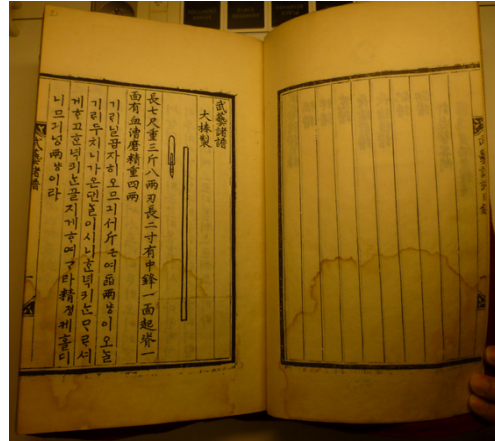 武藝諸譜
大棒製
長七尺重三斤八兩刃長二寸有中鋒一面起脊一
面有血漕磨精重四兩
기릐닐굽자히오므긔서斤근여듧兩냥이오ᄂᆞᆯ
기릐두치니가온댄ᄂᆞᆯ이시니ᄒᆞᆫ녁킈ᄂᆞᆫᄆᆞᄅᆞ셔
게ᄒᆞ고ᄒᆞᆫ녁킈ᄂᆞᆫ골지게ᄒᆞ여ᄀᆞ라精졍케ᄒᆞᆯ디
니므긔넉兩냥이라
武藝諸譜
一